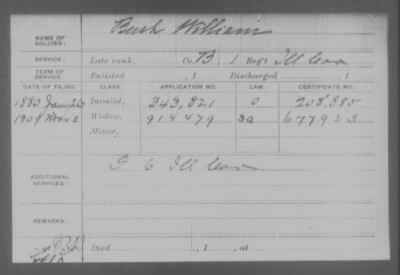 NAME OF SOLDIER: Bush William
SERVICE: Late rank, Co. B, 1 Reg't Ill Cav
TERM OF SERVICE: Enlisted , 1 Discharged , 1
DATE OF FILING. CLASS. APPLICATION NO. LAW. CERTIFICATE NO.
1880 Invalid, 343,821 0 208,885
Widow, 914479 677923
Minor,
ADDITIONAL SERVICES: Ill Cav
REMARKS:
Died , 1 , at